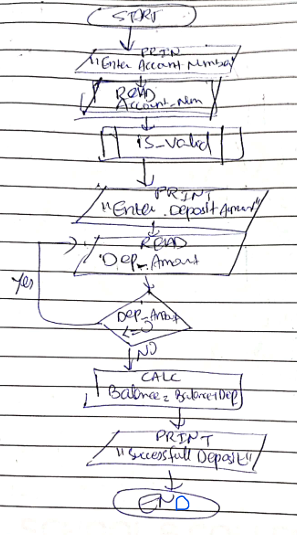 START
PRIN
"Enter Account Number"
READ
Account_Num
is_Valid
PRINT
"Enter Deposit Amount"
READ
Dep_Amount
Yes
Dep_Amount
<=0
NO
CALC
Balance = Balance+Dep
PRINT
"Successfull Deposit"
END